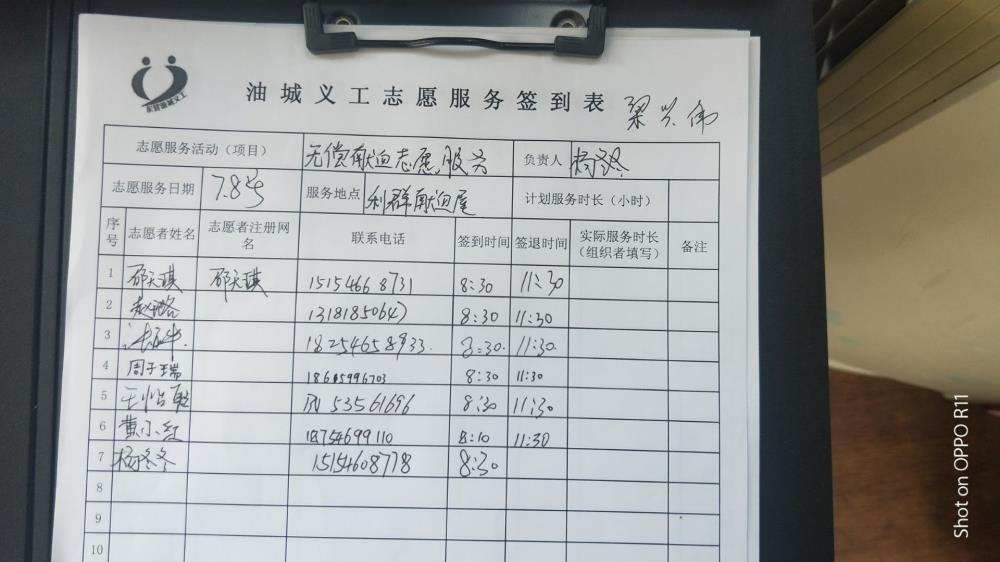 东营油城义工
油城义工志愿服务签到表
梁兴伟
志愿服务活动（项目） 无偿献血志愿服务 负责人 杨冬冬
志愿服务日期 7.8号 服务地点 利群献血屋 计划服务时长（小时）
序号 志愿者姓名 志愿者注册网名 联系电话 签到时间 签退时间 实际服务时长（组织者填写） 备注
1 邵天琪 邵天琪 15154668731 8:30 11:30
2 13181850647 8:30 11:30
3 18254658933 8:30 11:30
4 周子瑞 18615996703 8:30 11:30
5 53561696 8:30 11:30
6 黄小红 18754699110 8:10 11:30
7 杨冬冬 15154608778 8:30
8
9
10
Shot on OPPO R11